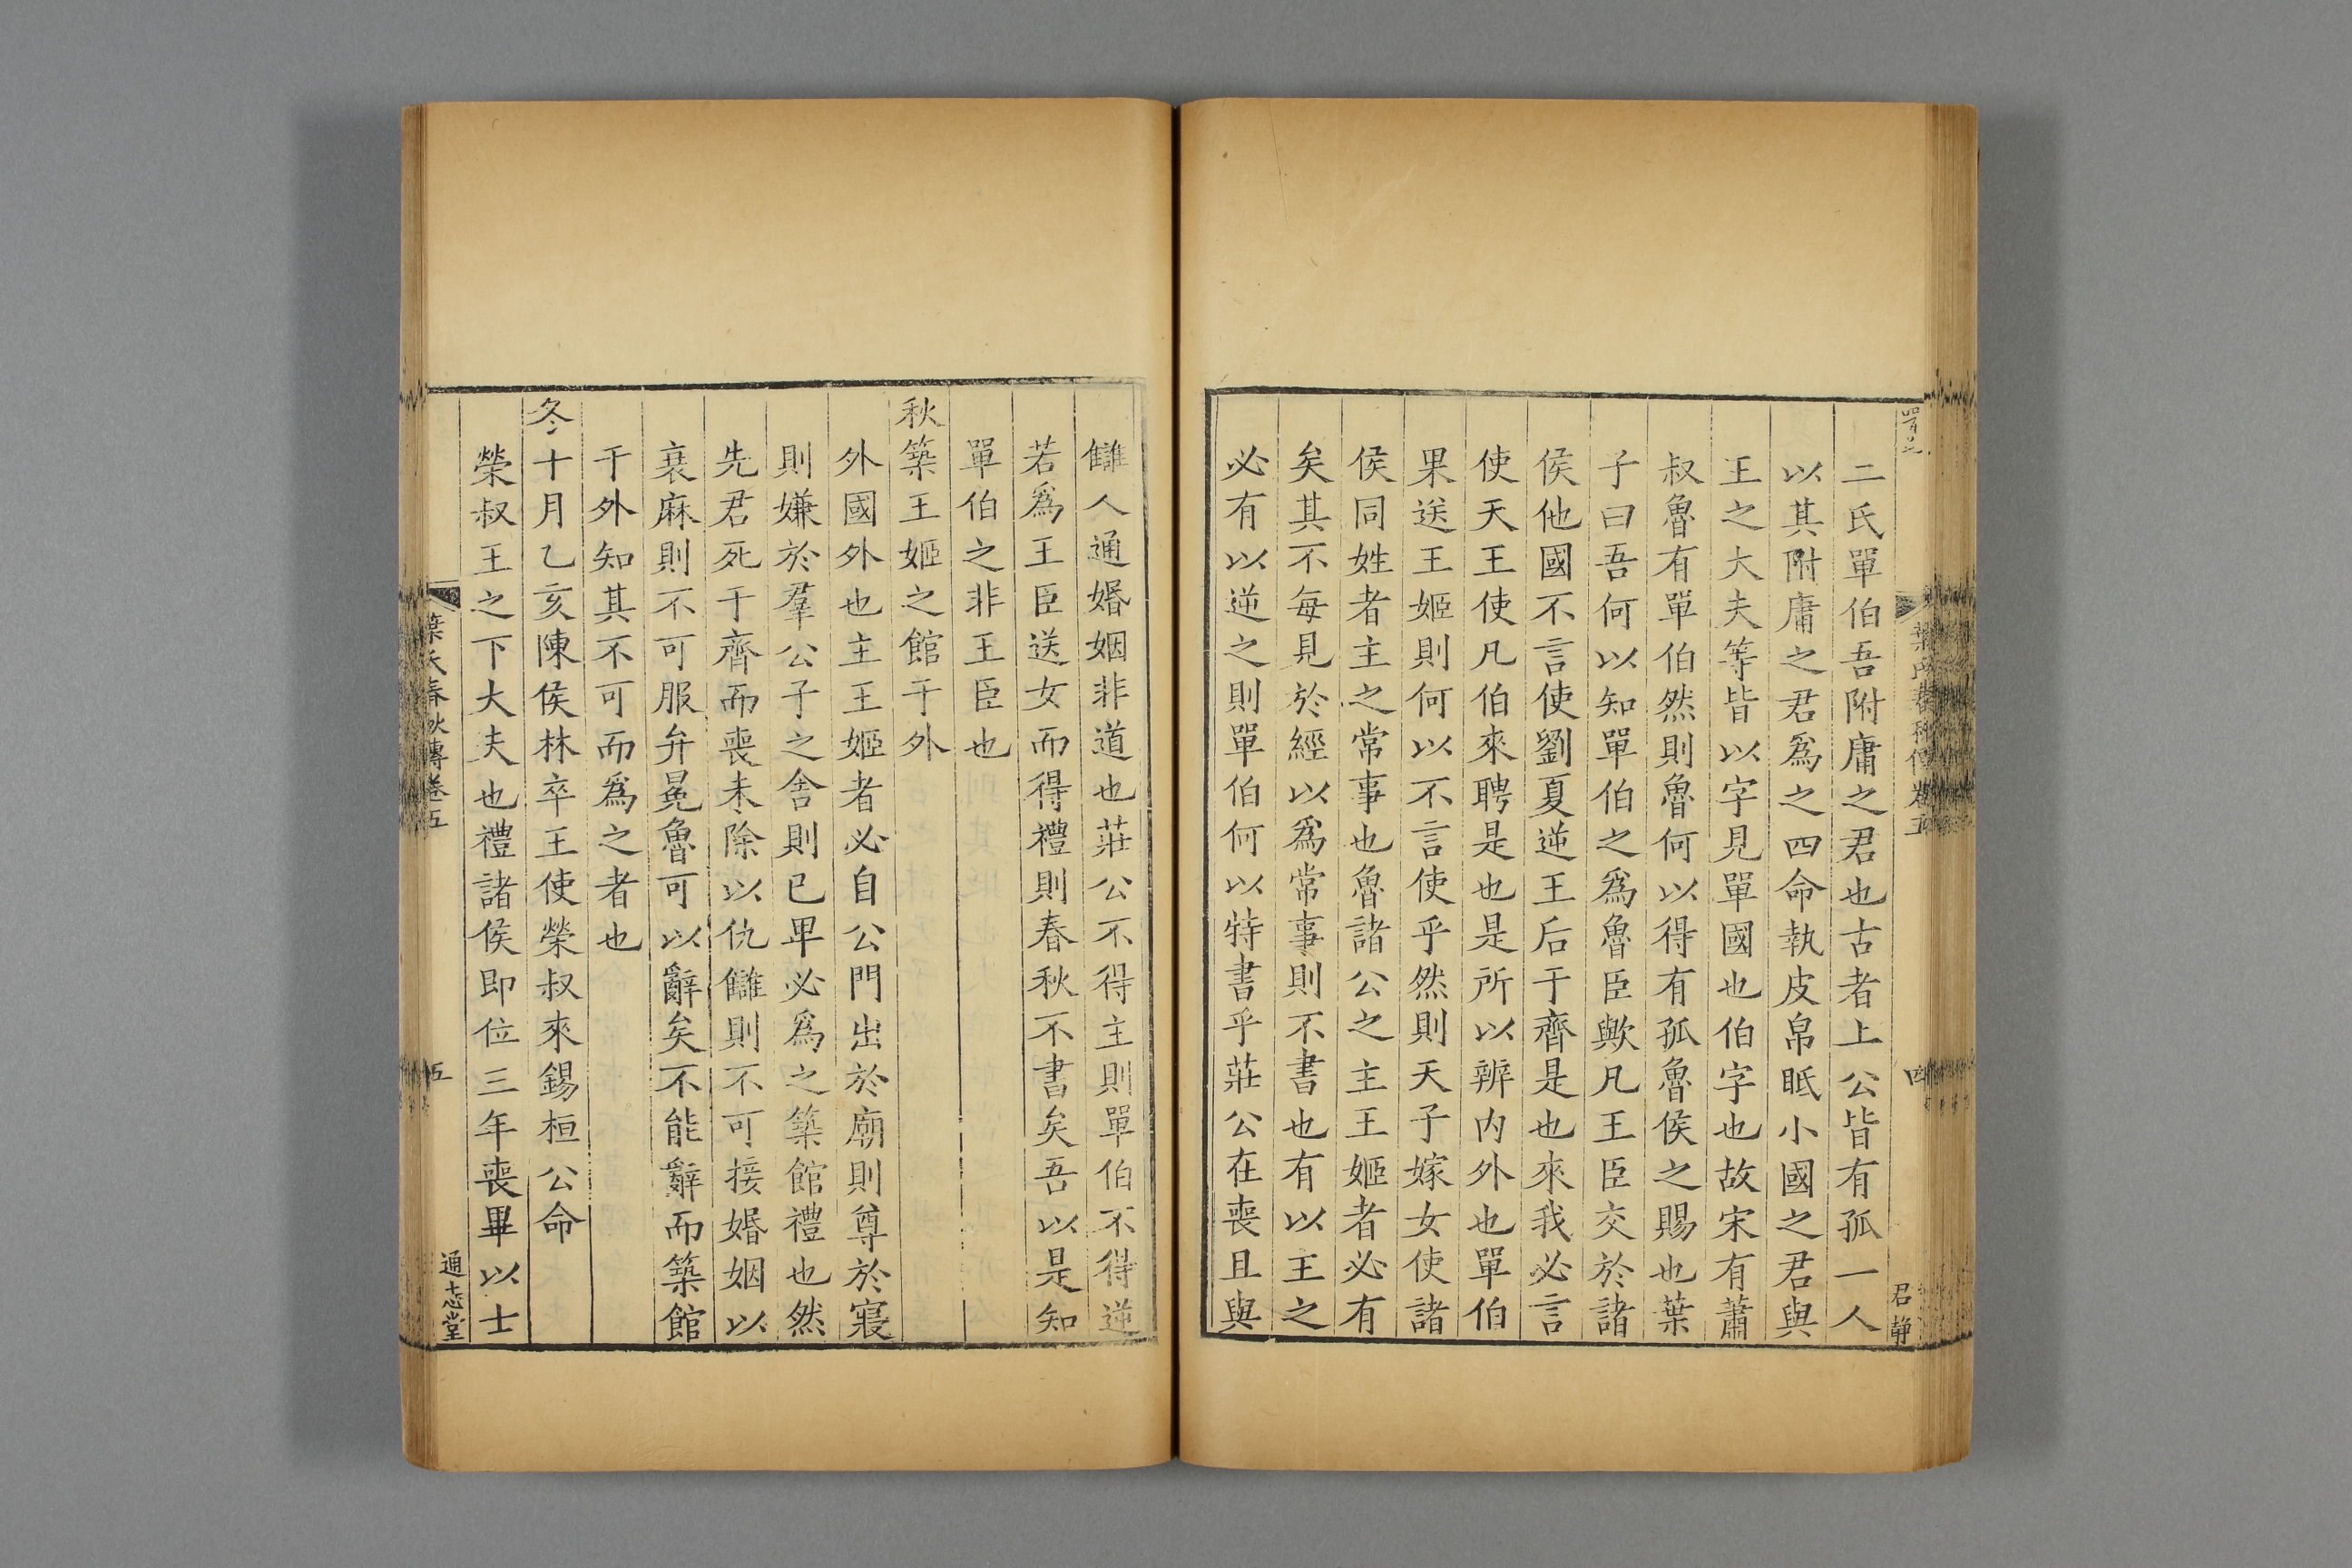 二氏單伯吾附庸之君也古者上公皆有孤一人
以其附庸之君爲之四命執皮帛眂小國之君與
王之大夫等皆以字見單國也伯字也故宋有蕭
叔魯有單伯然則魯何以得有孤魯侯之賜也葉
子曰吾何以知單伯之爲魯臣歟凡王臣交於諸
侯他國不言使劉夏逆王后于齊是也來我必言
使天王使凡伯來聘是也是所以辨内外也單伯
果送王姬則何以不言使乎然則天子嫁女使諸
侯同姓者主之常事也魯諸公之主王姬者必有
矣其不每見於經以爲常事則不書也有以主之
必有以逆之則單伯何以特書乎莊公在喪且與
葉氏春秋傳卷五
四
君靜
讎人通婚姻非道也莊公不得主則單伯不得逆
若爲王臣送女而得禮則春秋不書矣吾以是知
單伯之非王臣也
秋築王姬之館于外
外國外也主王姬者必自公門出於廟則尊於寢
則嫌於羣公子之舍則已卑必爲之築館禮也然
先君死于齊而喪未除以仇讎則不可接婚姻以
衰麻則不可服弁冕魯可以辭矣不能辭而築館
于外知其不可而爲之者也
冬十月乙亥陳侯林卒王使榮叔來錫桓公命
榮叔王之下大夫也禮諸侯即位三年喪畢以士
葉氏春秋傳卷五
五
通志堂